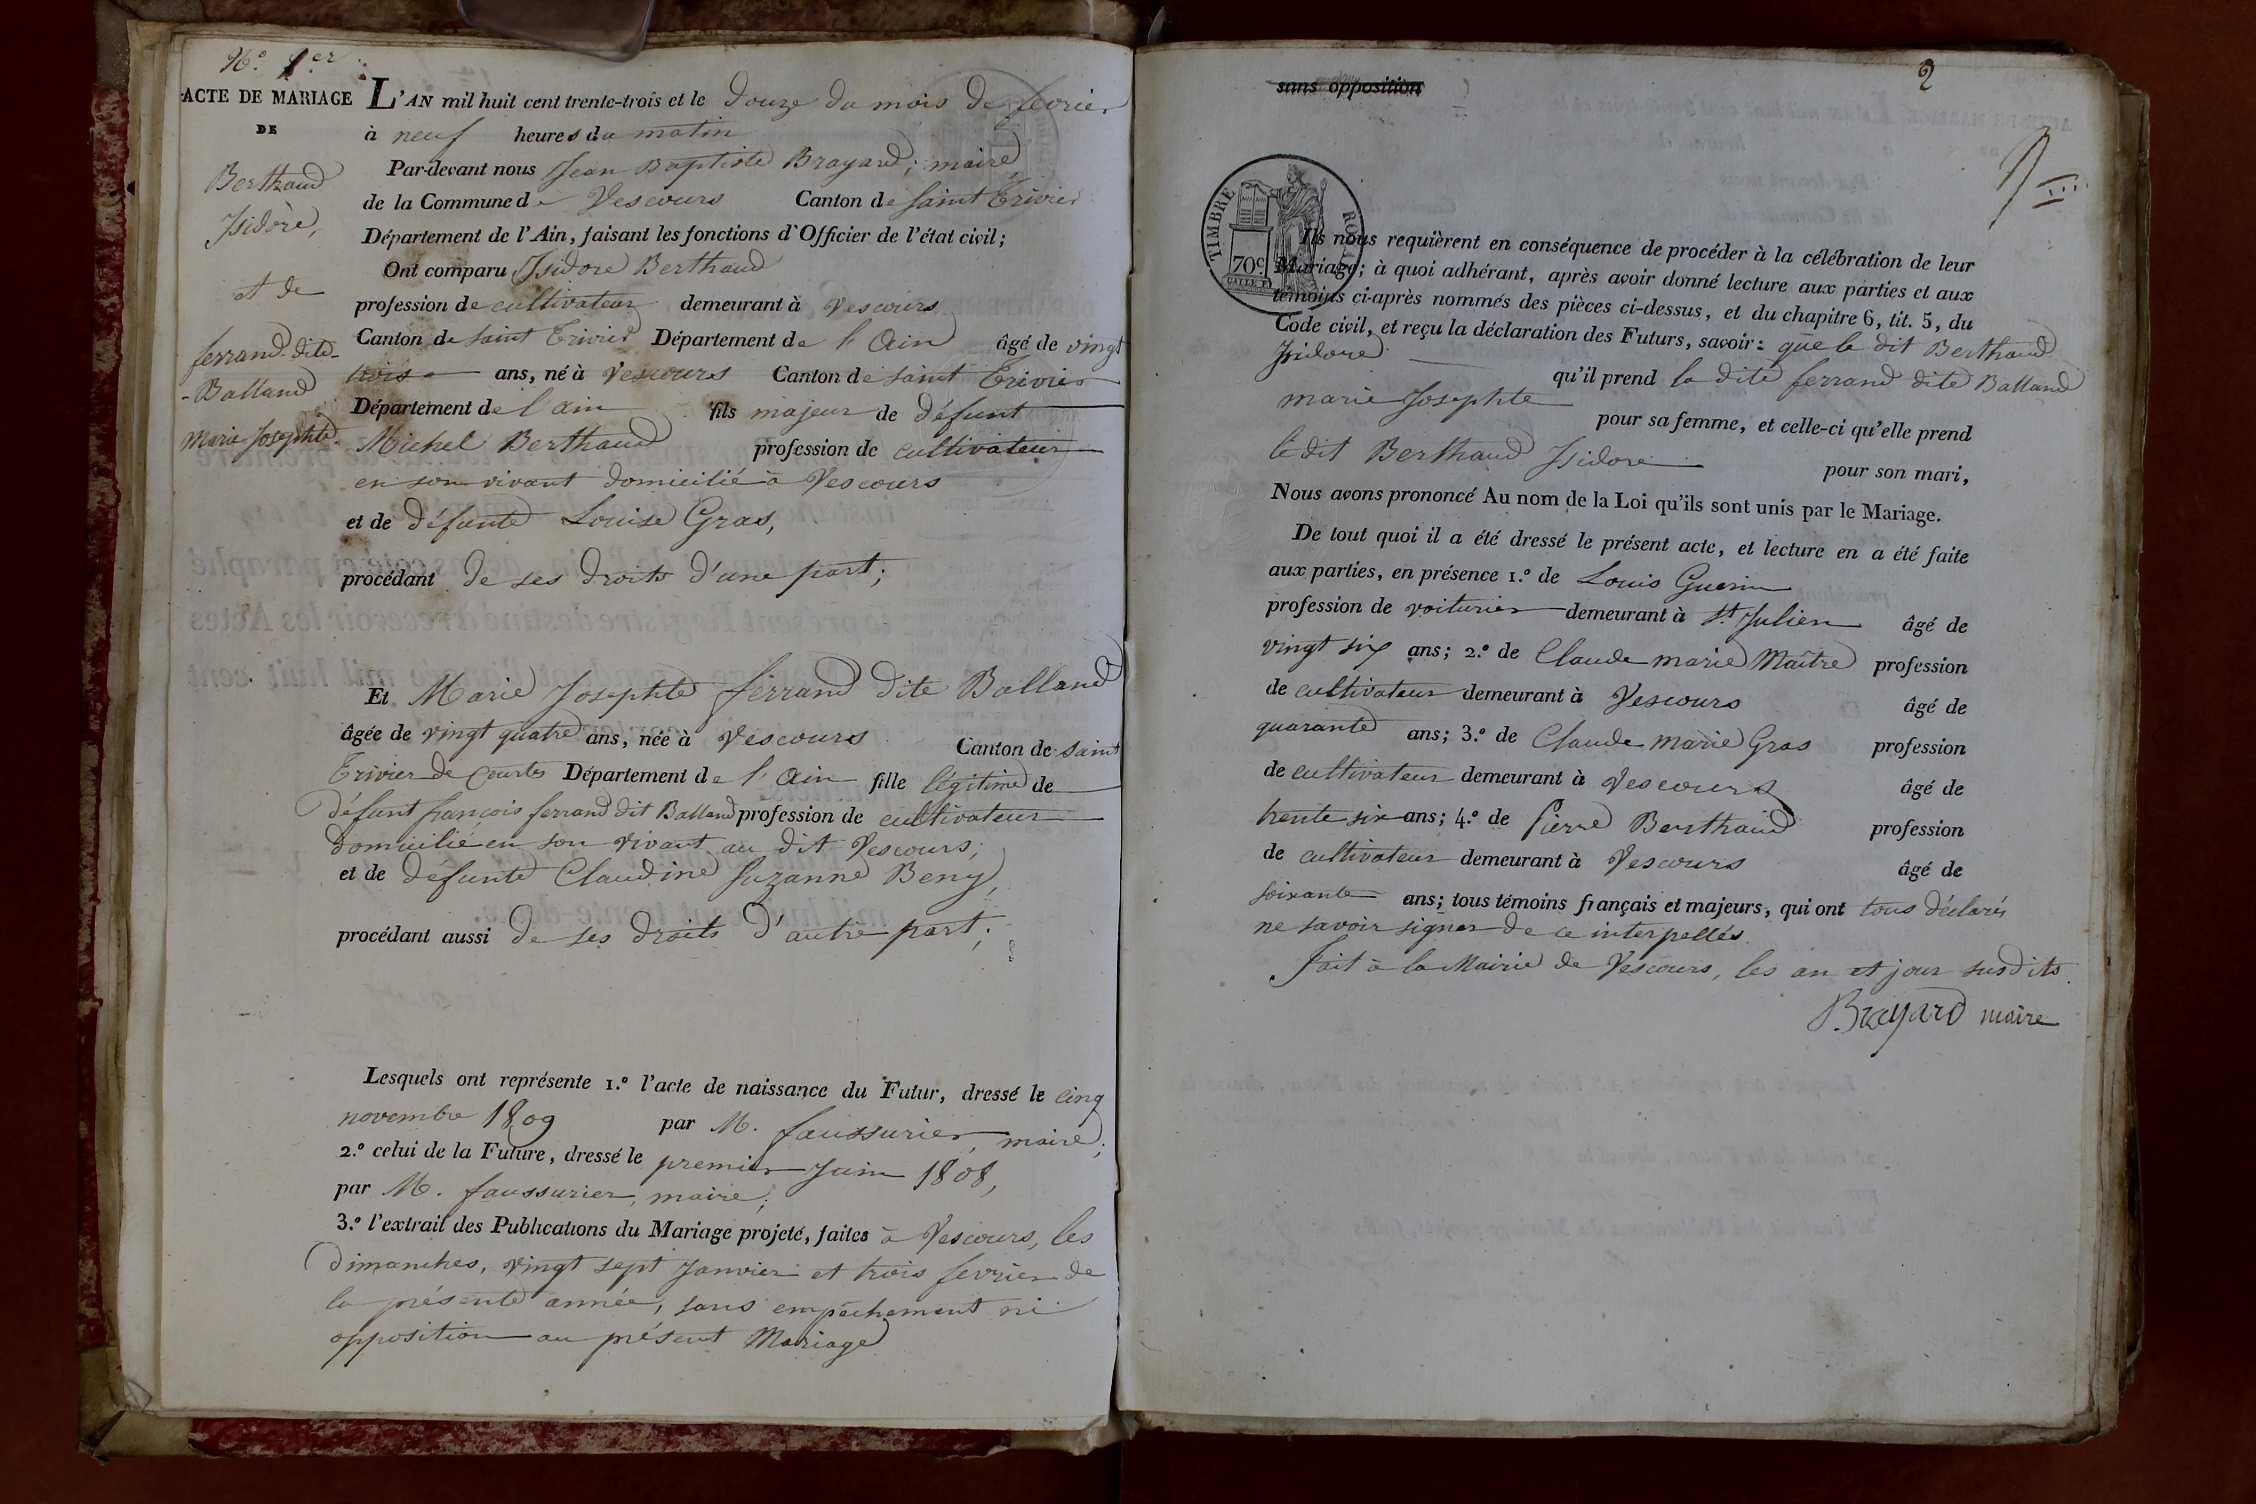 N.º 1er
ACTE DE MARIAGE
DE
Berthaud
Isidore,
et de
ferrand dite
Balland
Marie Josephte
L'AN mil huit cent trente-trois et le douze du mois de fevrier
à neuf heures du matin
Par-devant nous Jean Baptiste Brayard, maire
de la Commune de Vescours Canton de Saint Trivier
Département de l'Ain, faisant les fonctions d'Officier de l'état civil;
Ont comparu Isidore Berthaud
profession de cultivateur demeurant à Vescours
Canton de saint Trivier Département de l'Ain âgé de vingt
trois ans, né à Vescours Canton de saint Trivier
Département de l'ain fils majeur de défunt
Michel Berthaud profession de cultivateur
en son vivant domicilié à Vescours
et de défunte Louise Gras,
procédant de ses droits d'une part;
Et Marie Josephte ferrand dite Balland
âgée de vingt quatre ans, née à Vescours Canton de saint
Trivier de Courtes Département de l'Ain fille légitime de
défunt françois ferrand dit Balland profession de cultivateur
domicilié en son vivant au dit Vescours;
et de défunte Claudine Suzanne Beny,
procédant aussi de ses droits d'autre part;
Lesquels ont représente 1.º l'acte de naissance du Futur, dressé le cinq
novembre 1809 par M. faussurier, maire;
2.º celui de la Future, dressé le premier Juin 1808,
par M. faussurier, maire;
3.º l'extrait des Publications du Mariage projeté, faites à Vescours, les
dimanches, vingt sept Janvier et trois fevrier de
la présente année, sans empêchement ni
opposition au présent Mariage
2
sans opposition
TIMBRE ROYAL
70c
Ils nous requièrent en conséquence de procéder à la célébration de leur
Mariage; à quoi adhérant, après avoir donné lecture aux parties et aux
témoins ci-après nommés des pièces ci-dessus, et du chapitre 6, tit. 5, du
Code civil, et reçu la déclaration des Futurs, savoir: que le dit Berthaud
Isidore qu'il prend la dite ferrand dite Balland
marie Josephte pour sa femme, et celle-ci qu'elle prend
le dit Berthaud Isidore pour son mari,
Nous avons prononcé Au nom de la Loi qu'ils sont unis par le Mariage.
De tout quoi il a été dressé le présent acte, et lecture en a été faite
aux parties, en présence 1.º de Louis Guerin
profession de voiturier demeurant à St. Julien âgé de
vingt six ans; 2.º de Claude marie Maître profession
de cultivateur demeurant à Vescours âgé de
quarante ans; 3.º de Claude marie Gras profession
de cultivateur demeurant à Vescours âgé de
trente six ans; 4.º de Pierre Berthaud profession
de cultivateur demeurant à Vescours âgé de
soixante ans; tous témoins français et majeurs, qui ont tous déclarés
ne savoir signer de ce interpellés.
Fait à la Mairie de Vescours, les an et jour susdits.
Brayard maire